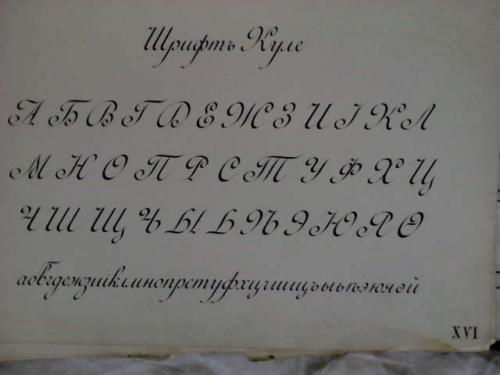 Шрифтъ Куле
А Б В Г Д Е Ж З И І К Л
М Н О П Р С Т У Ф Х Ц
Ч Ш Щ Ъ Ы Ь Ѣ Э Ю Я Ѳ
абвгдежзиіклмнопрстуфхцчшщъыьѣэюяѳй
XVI